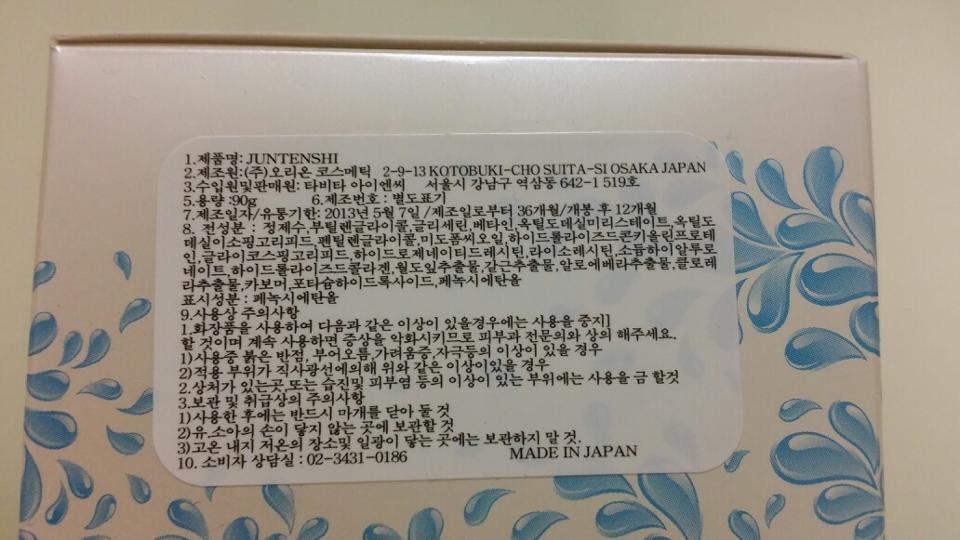 1.제품명: JUNTENSHI
2.제조원:(주)오리온 코스메틱 2-9-13 KOTOBUKI-CHO SUITA-SI OSAKA JAPAN
3.수입원및판매원: 타비타 아이엔씨 서울시 강남구 역삼동 642-1 519호
5.용량 :90g 6.제조번호 : 별도표기
7.제조일자/유통기한: 2013년 5월 7일 /제조일로부터 36개월/개봉 후 12개월
8. 전성분 : 정제수,부틸렌글라이콜,글리세린,베타인,옥틸도데실미리스테이트,옥틸도
데실이소핑고리피드,펜틸렌글라이콜,미도폼씨오일,하이드롤라이즈드콘키올린프로테
인,글라이코스핑고리피드,하이드로제네이티드레시틴,라이소레시틴,소듐하이알루로
네이트,하이드롤라이즈드콜라겐,월도잎추출물,갈근추출물,알로에베라추출물,클로레
라추출물,카보머,포타슘하이드록사이드,페녹시에탄올
표시성분 : 페녹시에탄올
9.사용상 주의사항
1.화장품을 사용하여 다음과 같은 이상이 있을경우에는 사용을 중지]
할 것이며 계속 사용하면 증상을 악화시키므로 피부과 전문의와 상의 해주세요.
1)사용중 붉은 반점, 부어오름,가려움증,자극등의 이상이 있을 경우
2)적용 부위가 직사광선에의해 위와 같은 이상이있을 경우
2.상처가 있는곳,또는 습진및 피부염 등의 이상이 있는 부위에는 사용을 금 할것
3.보관 및 취급상의 주의사항
1)사용한 후에는 반드시 마개를 닫아 둘 것
2)유.소아의 손이 닿지 않는 곳에 보관할 것
3)고온 내지 저온의 장소및 일광이 닿는 곳에는 보관하지 말 것.
10. 소비자 상담실 : 02-3431-0186 MADE IN JAPAN